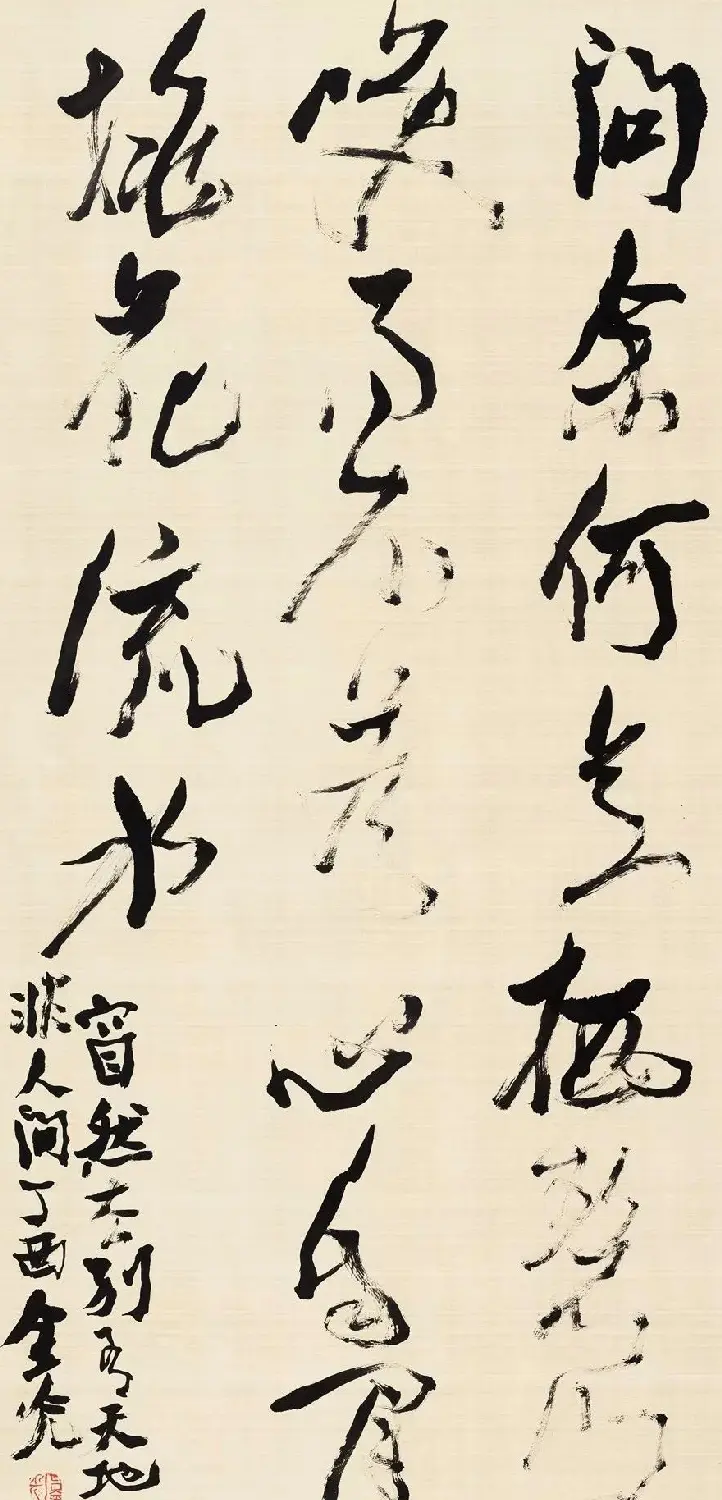 問余何意栖碧山
咲而不答心自閒
桃花流水
窅然去别有天地
非人間丁酉金光